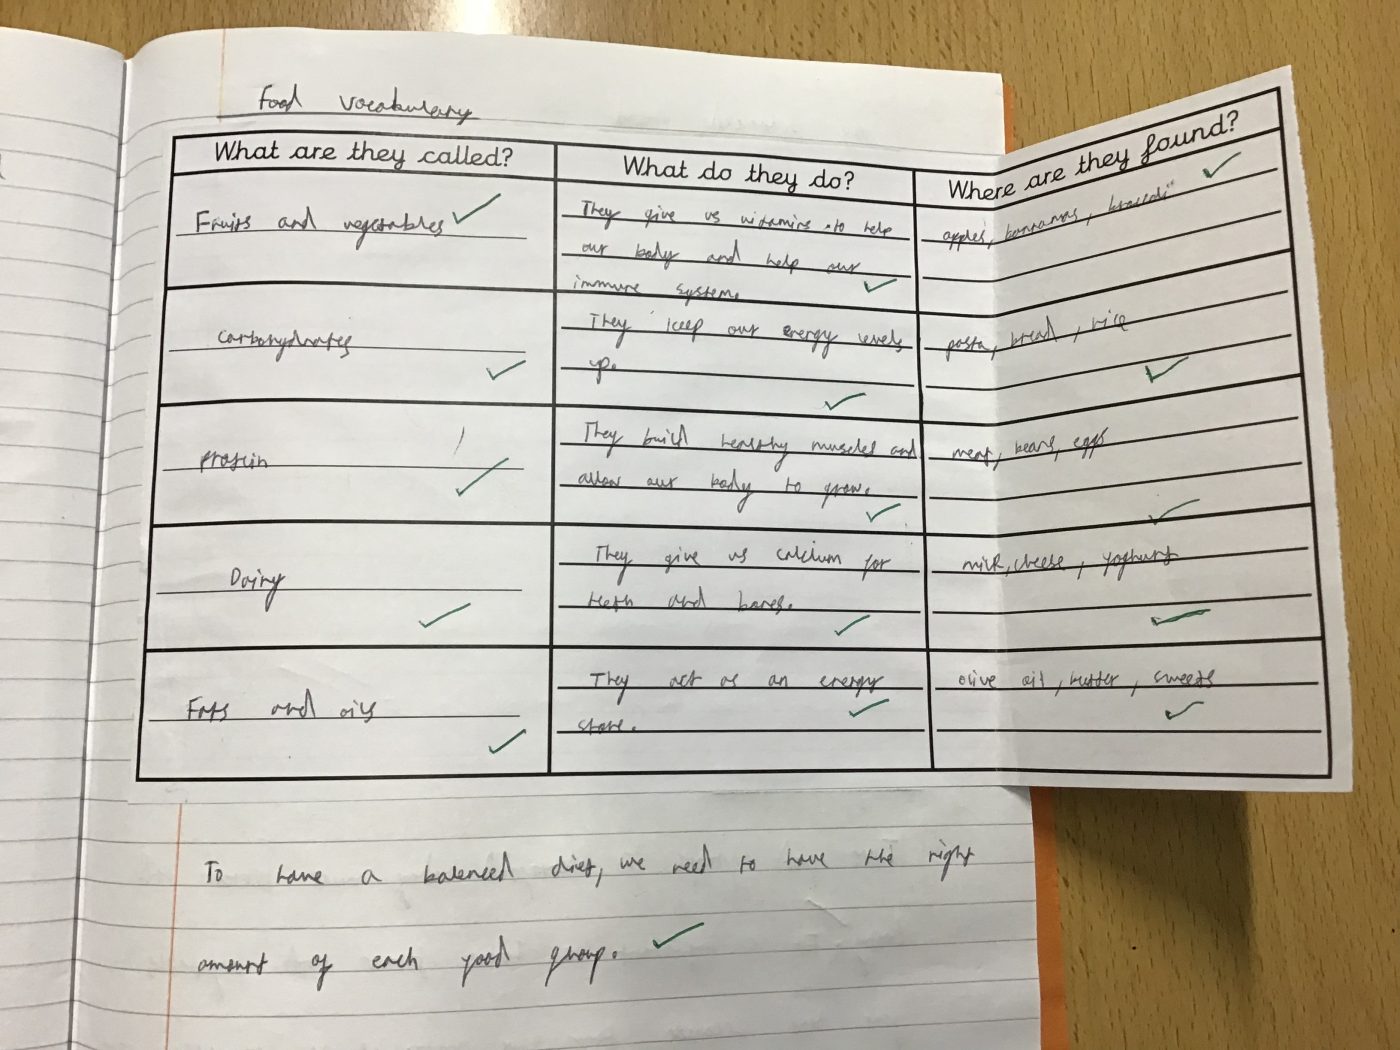 Food vocabulary
What are they called? What do they do? Where are they found?
Fruits and vegetables
They give us vitamins to help
our body and help our
immune system.
apples, bannanas, broccoli
carbohydrates
They keep our energy levels
up.
pasta, bread, rice
protein
They build healthy muscles and
allow our body to grow.
meat, beans, eggs
Dairy
They give us calcium for
teeth and bones.
milk, cheese, yoghurt
Fats and oils
They act as an energy
store.
olive oil, butter, sweets
To have a balenced diet, we need to have the right
amount of each food group.